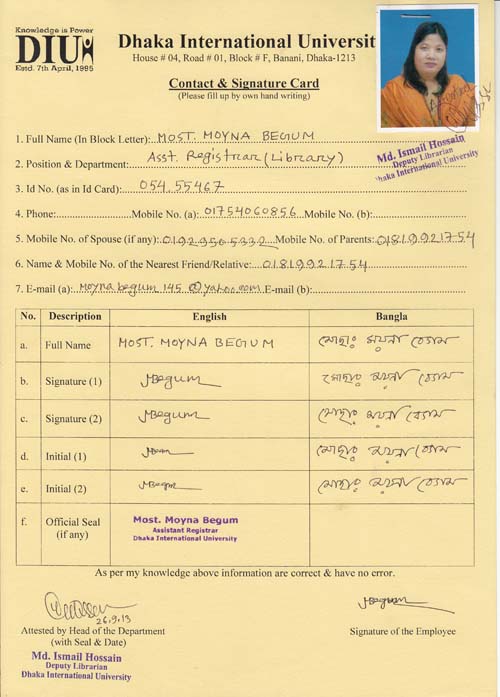 Knowledge is Power
DIU
Estd. 7th April, 1995
Dhaka International University
House # 04, Road # 01, Block # F, Banani, Dhaka-1213
Contact & Signature Card
(Please fill up by own hand writing)
Attested
1. Full Name (In Block Letter): MOST. MOYNA BEGUM
2. Position & Department: Asst. Registrar (Library)
Md. Ismail Hossain
Deputy Librarian
Dhaka International University
3. Id No. (as in Id Card): 054 55467
4. Phone: Mobile No. (a): 01754060856 Mobile No. (b):
5. Mobile No. of Spouse (if any): 01929505332 Mobile No. of Parents: 01819921754
6. Name & Mobile No. of the Nearest Friend/Relative: 01819921754
7. E-mail (a): moynabegum145@yahoo.com E-mail (b):
No. Description English Bangla
a. Full Name MOST. MOYNA BEGUM মোছাঃ ময়না বেগম
b. Signature (1) MBegum মোছাঃ ময়না বেগম
c. Signature (2) MBegum মোছাঃ ময়না বেগম
d. Initial (1) মোছাঃ ময়না বেগম
e. Initial (2) MBegm মোছাঃ ময়না বেগম
f. Official Seal (if any) Most. Moyna Begum
Assistant Registrar
Dhaka International University
As per my knowledge above information are correct & have no error.
26.9.13
MBegum
Attested by Head of the Department
(with Seal & Date)
Signature of the Employee
Md. Ismail Hossain
Deputy Librarian
Dhaka International University